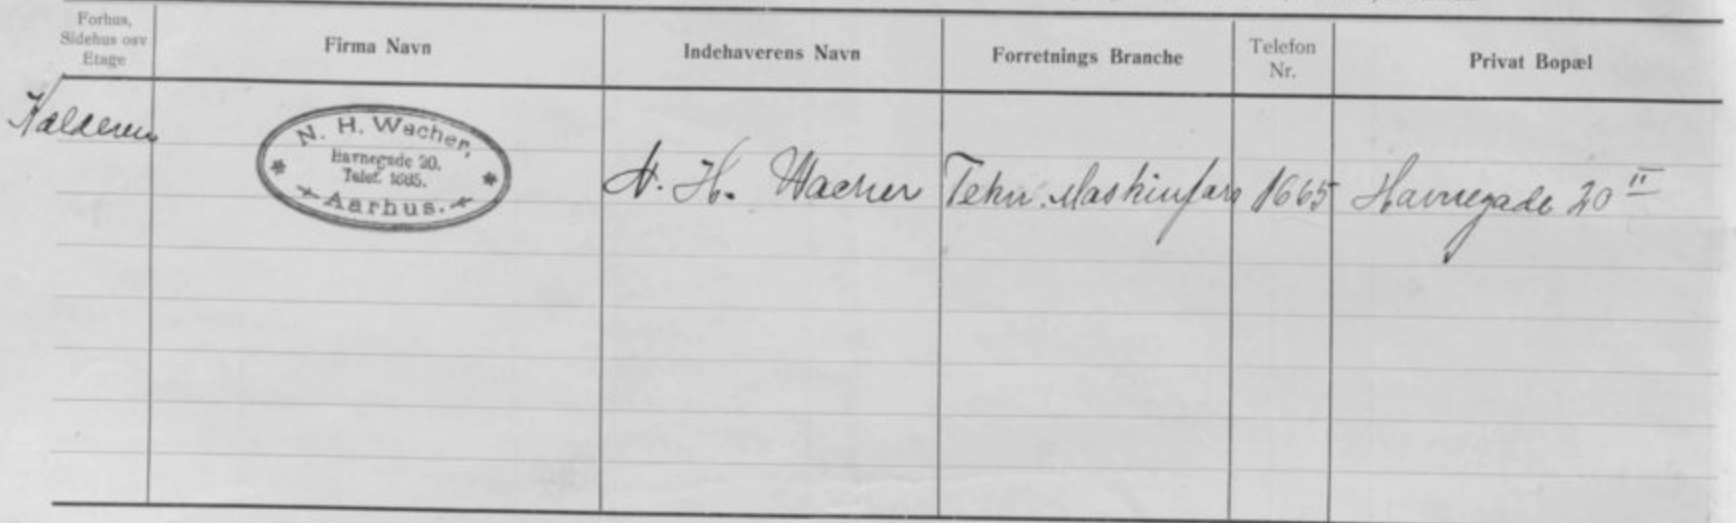 Forhus,
Sidehus osv
Etage
Firma Navn
Indehaverens Navn
Forretnings Branche
Telefon
Nr.
Privat Bopæl
Kælderen
N. H. Wacher,
Havnegade 20.
Telef. 1685.
Aarhus.
N. H. Wacher
Tekn. Maskinforr
1665
Havnegade 20 II